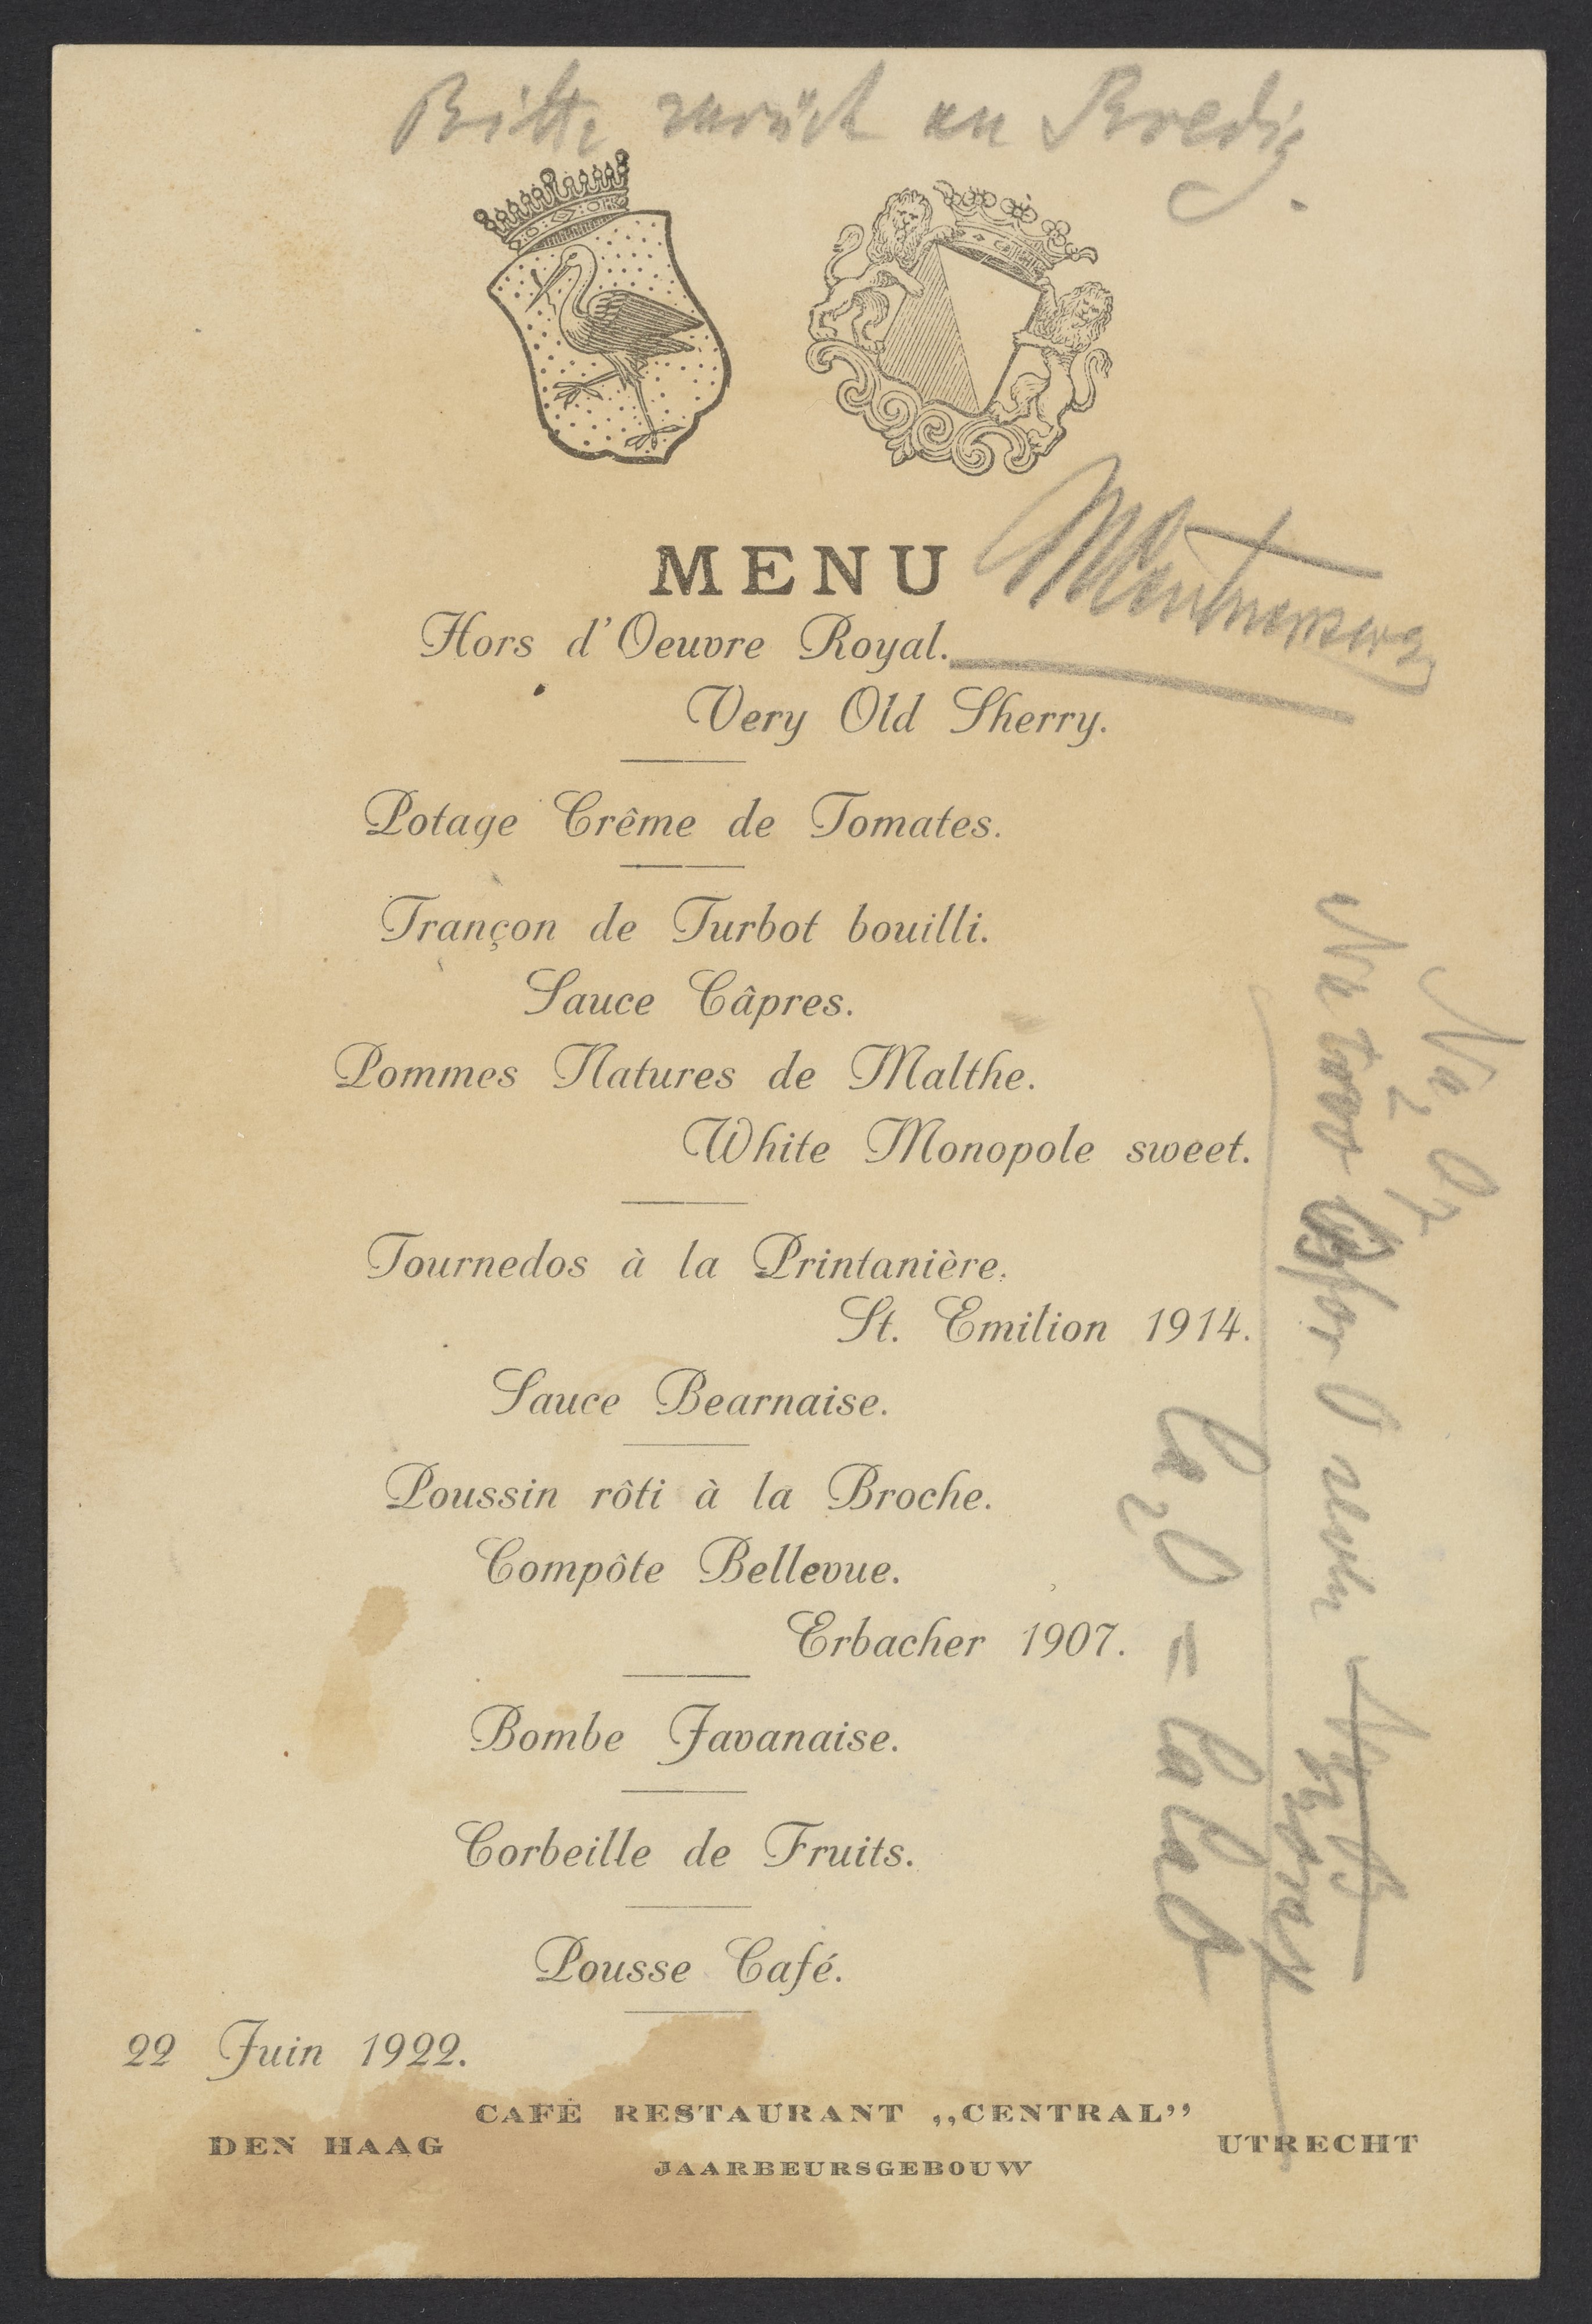 Bitte zurück an Bredig.
MENU
Hors d'Oeuvre Royal.
Very Old Sherry.
Potage Crême de Tomates.
Trançon de Turbot bouilli.
Sauce Câpres.
Pommes Natures de Malthe.
White Monopole sweet.
Tournedos à la Printanière.
St. Emilion 1914.
Sauce Bearnaise.
Poussin rôti à la Broche.
Compôte Bellevue.
Erbacher 1907.
Bombe Javanaise.
Corbeille de Fruits.
Pousse Café.
22 Juin 1922.
CAFÉ RESTAURANT „CENTRAL”
DEN HAAG
UTRECHT
JAARBEURSGEBOUW
Na2 O7